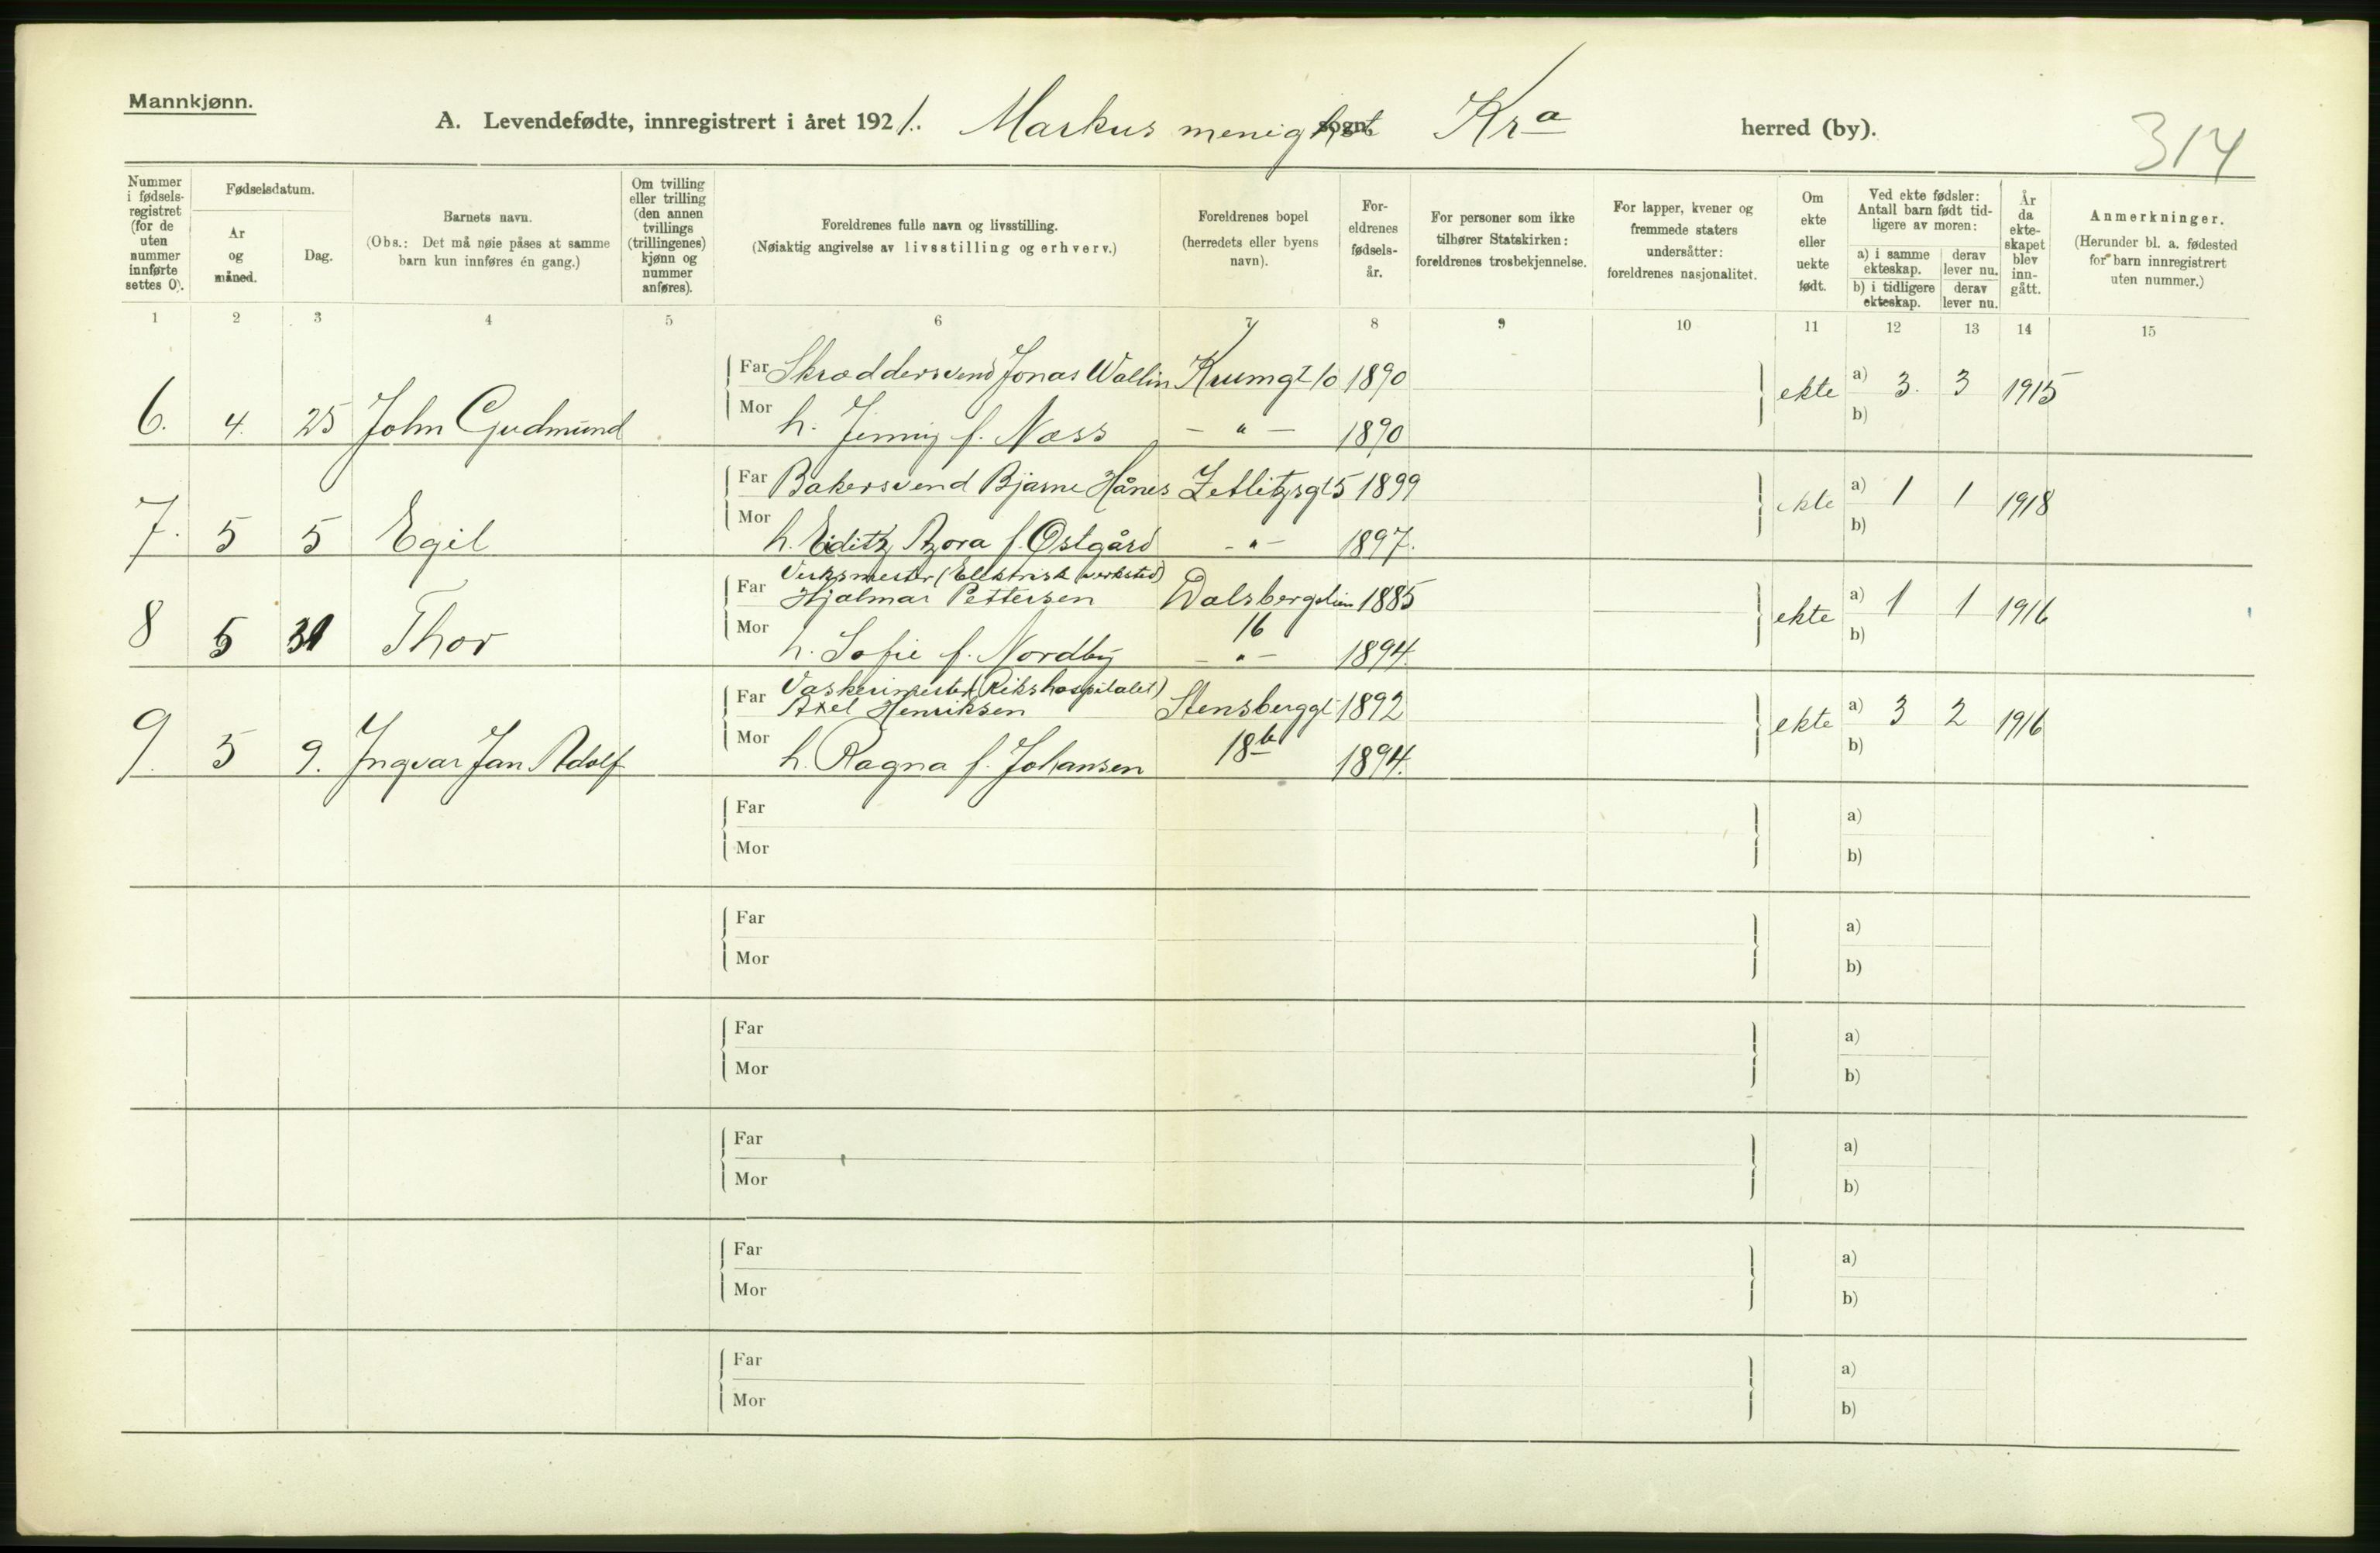 Mannkjønn.
A. Levendefødte, innregistrert i året 1921. Markus menighet sogn Kra herred (by).
314
Nummer i fødselsregistret (for de uten nummer innførte settes 0).
Fødselsdatum.
År og måned.
Dag.
Barnets navn.
(Obs.: Det må nøie påses at samme barn kun innføres én gang.)
Om tvilling eller trilling (den annen tvillings (trillingenes) kjønn og nummer anføres).
Foreldrenes fulle navn og livsstilling.
(Nøiaktig angivelse av livsstilling og erhverv.)
Foreldrenes bopel (herredets eller byens navn).
Foreldrenes fødselsår.
For personer som ikke tilhører Statskirken: foreldrenes trosbekjennelse.
For lapper, kvener og fremmede staters undersåtter: foreldrenes nasjonalitet.
Om ekte eller uekte født.
Ved ekte fødsler: Antall barn født tidligere av moren:
a) i samme ekteskap. derav lever nu.
b) i tidligere ekteskap. derav lever nu.
År da ekteskapet blev inngått.
Anmerkninger.
(Herunder bl. a. fødested for barn innregistrert uten nummer.)
1 2 3 4 5 6 7 8 9 10 11 12 13 14 15
Far Skræddersvend Jonas Wallin Krumgt 10 1890
6. 4. 25 John Gudmund ekte a) 3. 3 1915
Mor h. Jenny f. Næss - " - 1890 b)
Far Bakersvend Bjarne Hånes Zetlitzsgt 5 1899
7. 5 5 Egil ekte a) 1 1 1918
Mor h. Edith Thora f. Østgård - " - 1897. b)
Verksmester (Elektrisk verksted)
Far Hjalmar Pettersen Dalsbergstien 1885
16
8 5 31 Thor ekte a) 1 1 1916
Mor h. Sofie f. Nordby - " - 1894. b)
Vaskerimester (Rikshospitalet)
Far Axel Henriksen Stensberggt 1892
18b
9. 5 9. Ingvar Jan Adolf ekte a) 3 2 1916
Mor h. Ragna f. Johansen 1894. b)
Far a)
Mor b)
Far a)
Mor b)
Far a)
Mor b)
Far a)
Mor b)
Far a)
Mor b)
Far a)
Mor b)